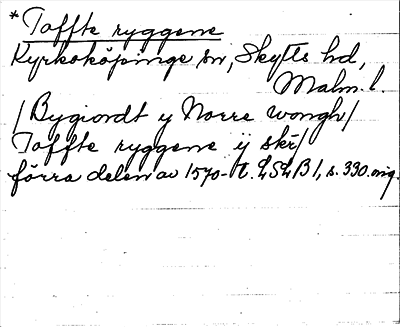 *Toffte ryggene
Kyrkoköpinge sn, Skytts hd,
Malm. l.
/Bygiordt y Norre wongh/
Toffte ryggene ÿ skr/
förra delen av 1570-t. LSLB 1, s. 330.